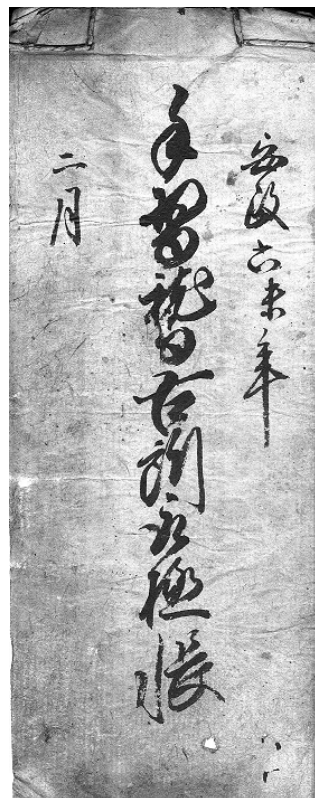 安政六未年
手習稽古取極帳
二月